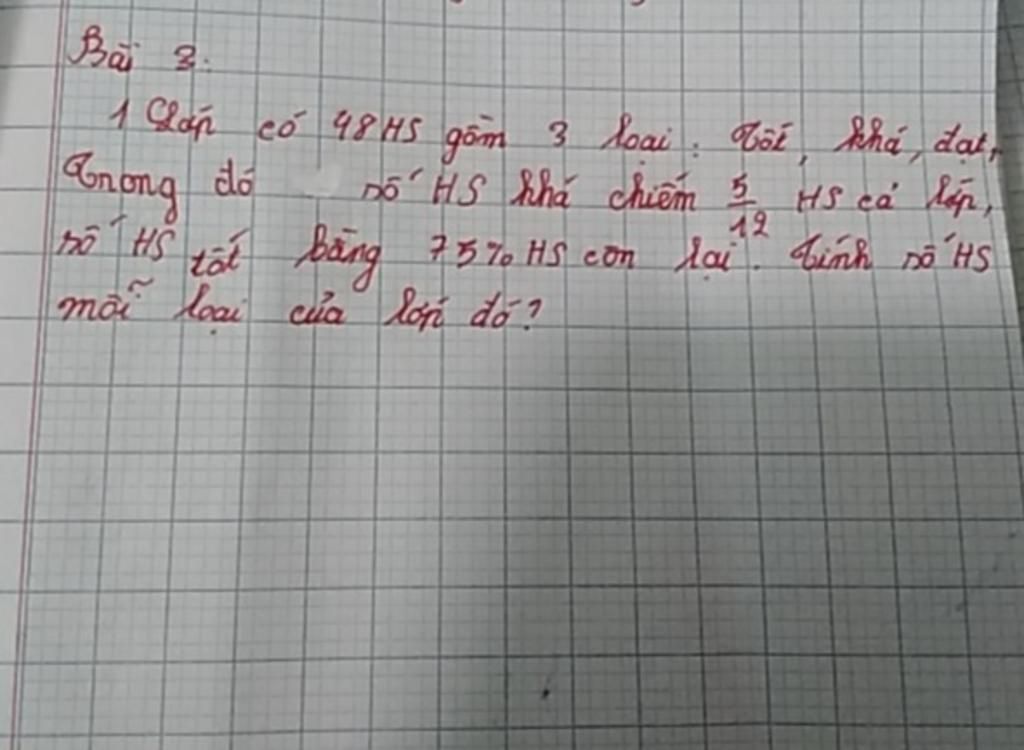 Bài 3:
1 Lớp có 48 HS gồm 3 loại: Tốt, khá, đạt,
Trong đó số HS khá chiếm 5/12 HS cả lớp,
số HS tốt bằng 75% HS còn lại. Tính số HS
mỗi loại của lớp đó?